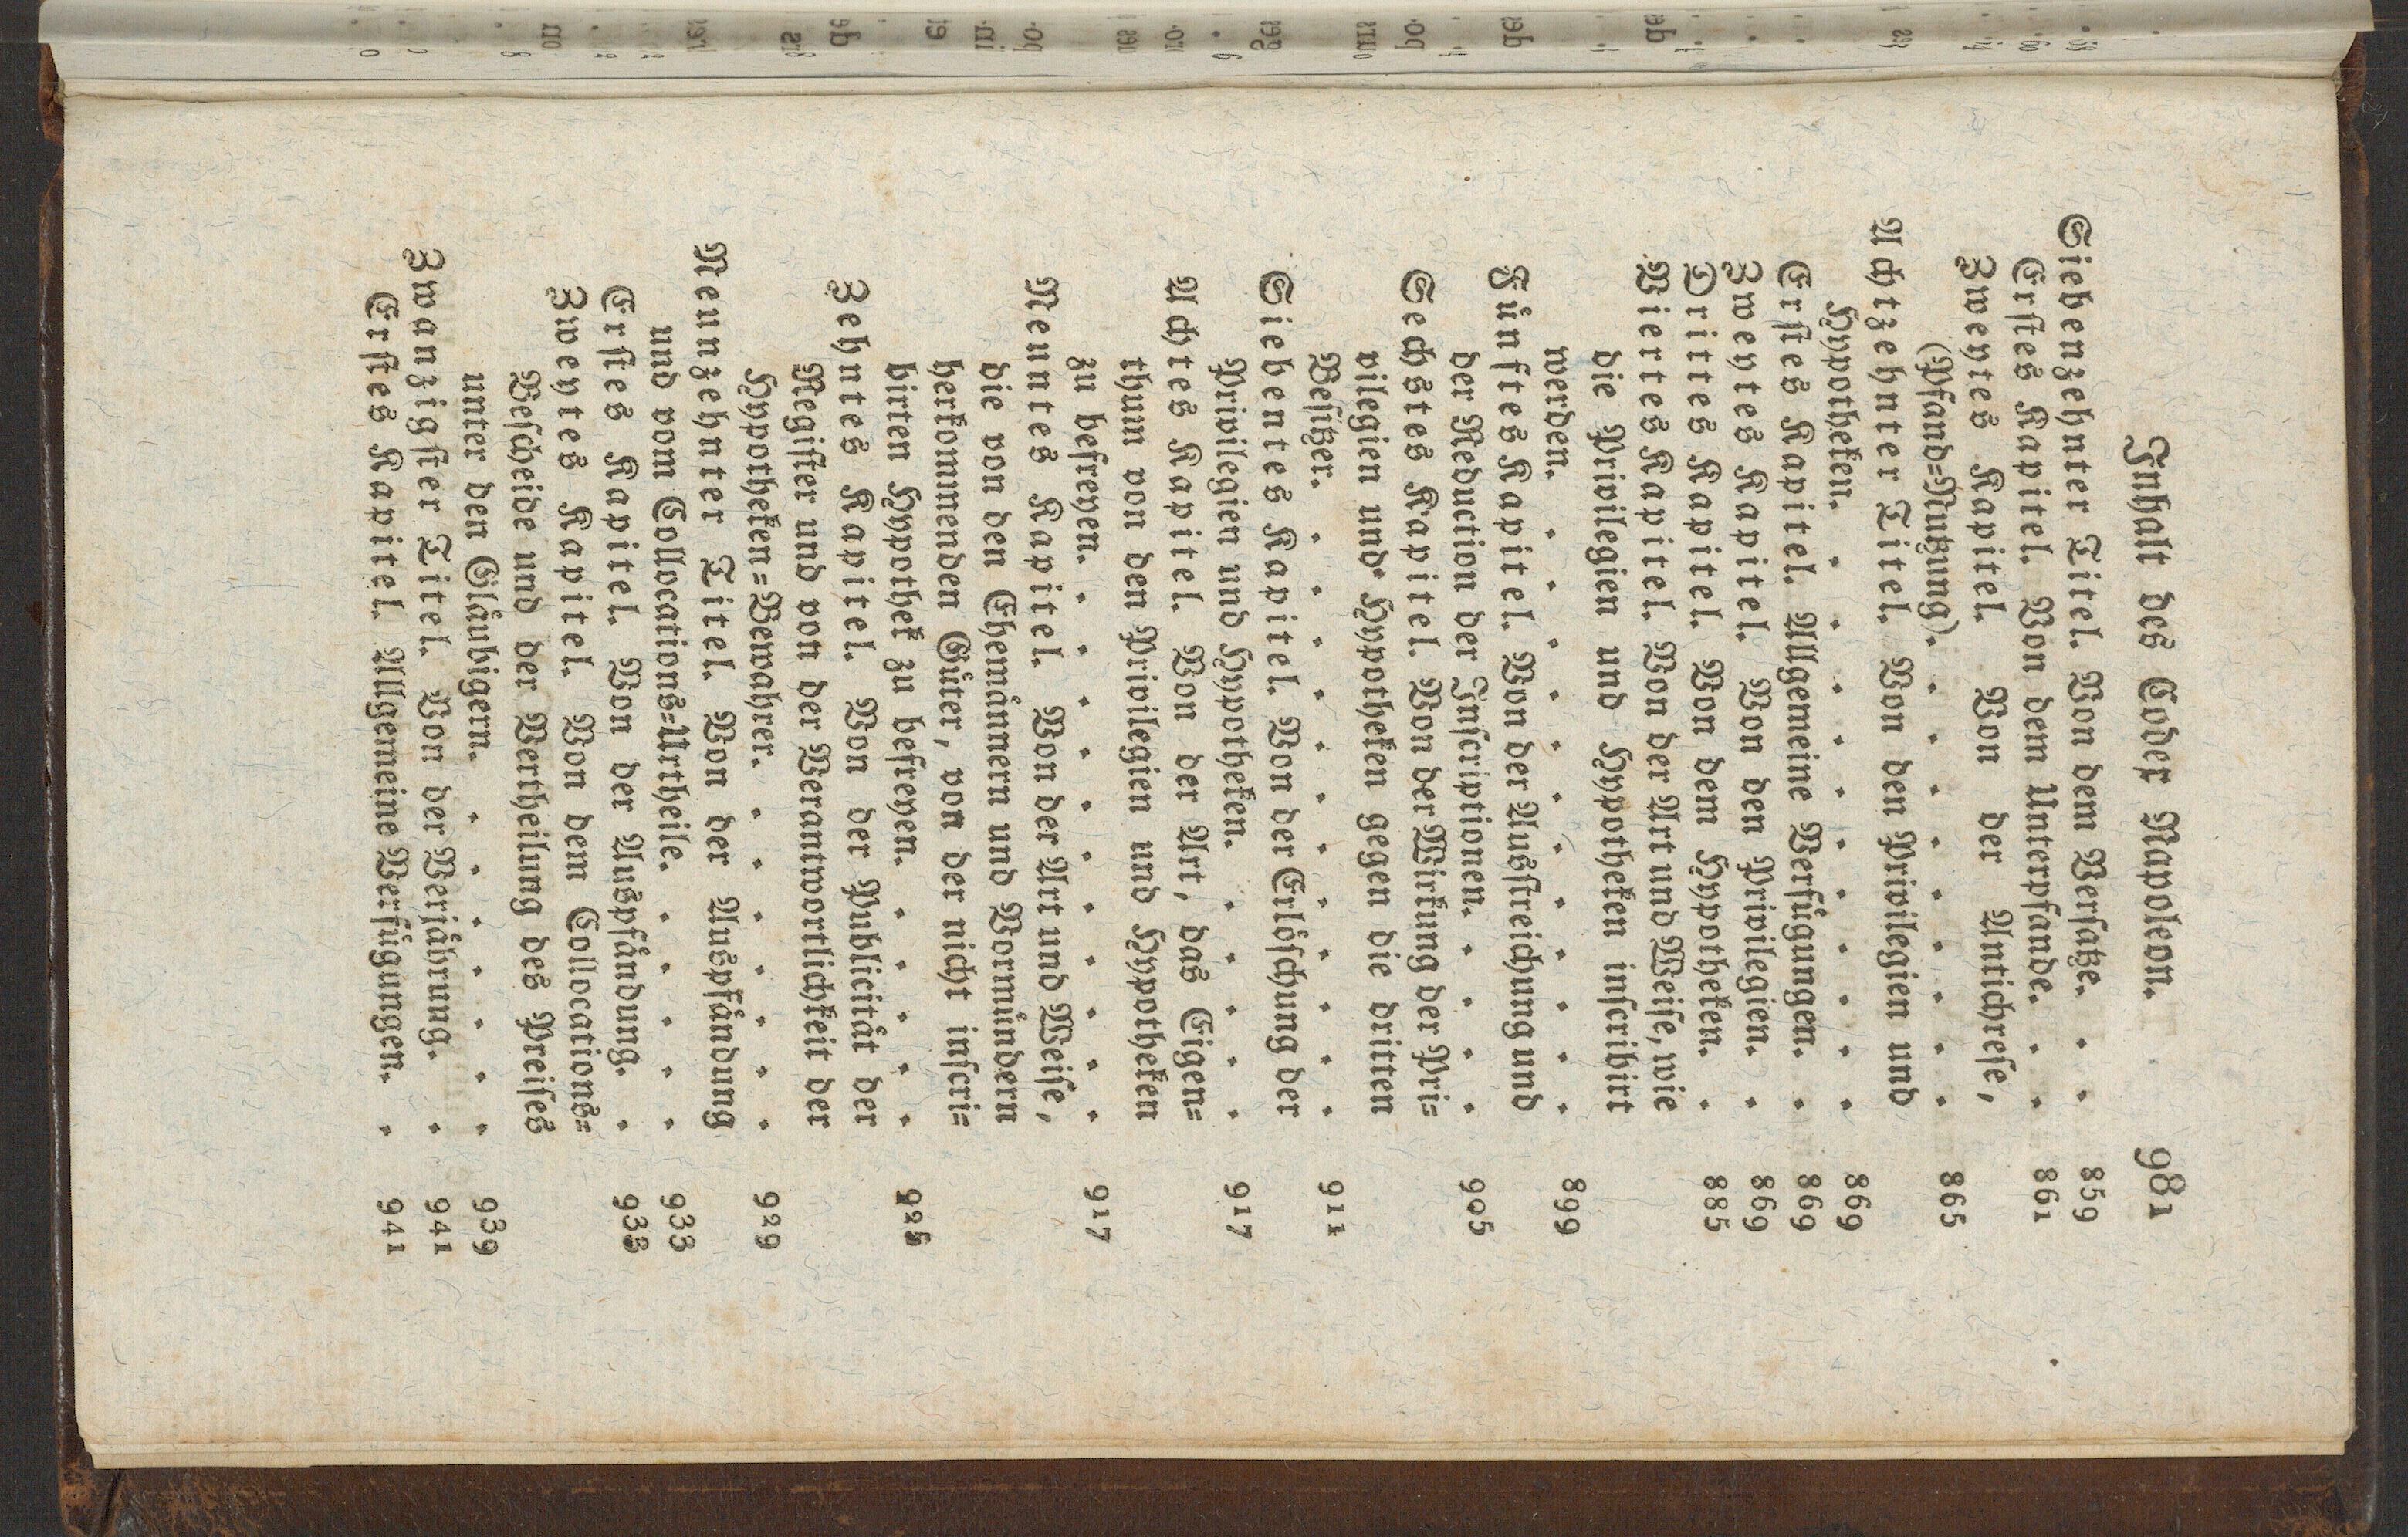 Inhalt des Codex Napoleon. 981
Siebenzehnter Titel. Von dem Versatze. . . 859
Erstes Kapitel. Von dem Unterpfande. . . 861
Zweytes Kapitel. Von der Antichrese,
(Pfand=Nutzung). . . . . . . . . 865
Achtzehnter Titel. Von den Privilegien und
Hypotheken. . . . . . . . . . . . 869
Erstes Kapitel. Allgemeine Verfügungen. . 869
Zweytes Kapitel. Von den Privilegien. . 869
Drittes Kapitel. Von den Hypotheken. . 885
Viertes Kapitel. Von der Art und Weise, wie
die Privilegien und Hypotheken inscribirt
werden. . . . . . . . . . . . 899
Fünftes Kapitel. Von der Ausstreichung und
der Reduction der Inscriptionen. . . . . 905
Sechstes Kapitel. Von der Wirkung der Pri=
vilegien und Hypotheken gegen die dritten
Besitzer. . . . . . . . . . . . . 911
Siebentes Kapitel. Von der Erlöschung der
Privilegien und Hypotheken. . . . . . 917
Achtes Kapitel. Von der Art, das Eigen=
thum von den Privilegien und Hypotheken
zu befreyen. . . . . . . . . . . . 917
Neuntes Kapitel. Von der Art und Weise,
die von den Ehemännern und Vormündern
herkommenden Güter, von der nicht inscri=
birten Hypothek zu befreyen. . . . . . 925
Zehntes Kapitel. Von der Publicität der
Register und von der Verantwortlichkeit der
Hypotheken=Bewahrer. . . . . . . . 929
Neunzehnter Titel. Von der Auspfändung
und vom Collocations=Urtheile. . . . . . 933
Erstes Kapitel. Von der Auspfändung. . 933
Zweytes Kapitel. Von dem Collocations=
Bescheide und der Vertheilung des Preises
unter den Gläubigern. . . . . . . . 939
Zwanzigster Titel. Von der Verjährung. . 941
Erstes Kapitel. Allgemeine Verfügungen. . 941